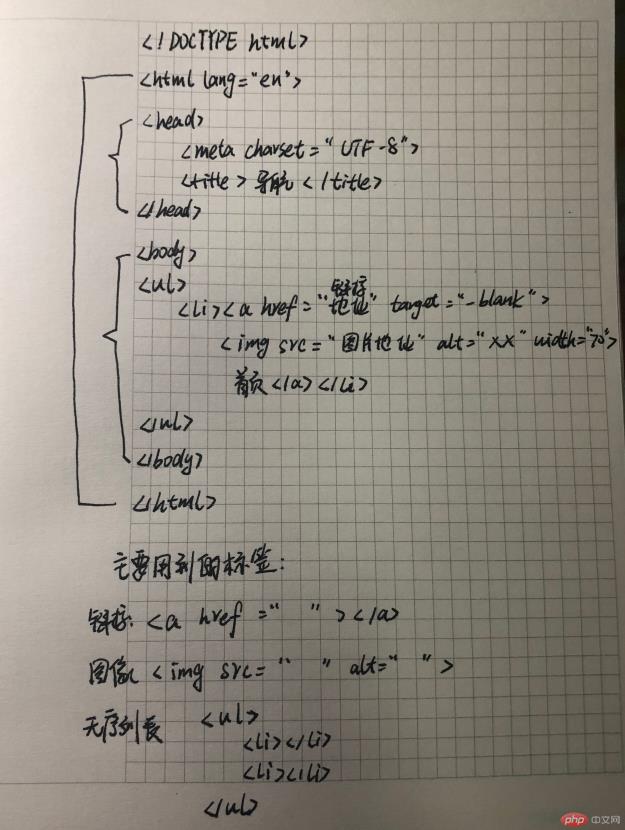 <! DOCTYPE html>
<html lang="en">
<head>
<meta charset="UTF-8">
<title>导航</title>
</head>
<body>
<ul>
<li><a href="链接地址" target="-blank">
<img src="图片地址" alt="XX" width="70">
首页</a></li>
</ul>
</body>
</html>
主要用到的标签:
链接: <a href=" "></a>
图像 <img src=" " alt=" ">
无序列表 <ul>
<li></li>
<li></li>
</ul>
php 中文网